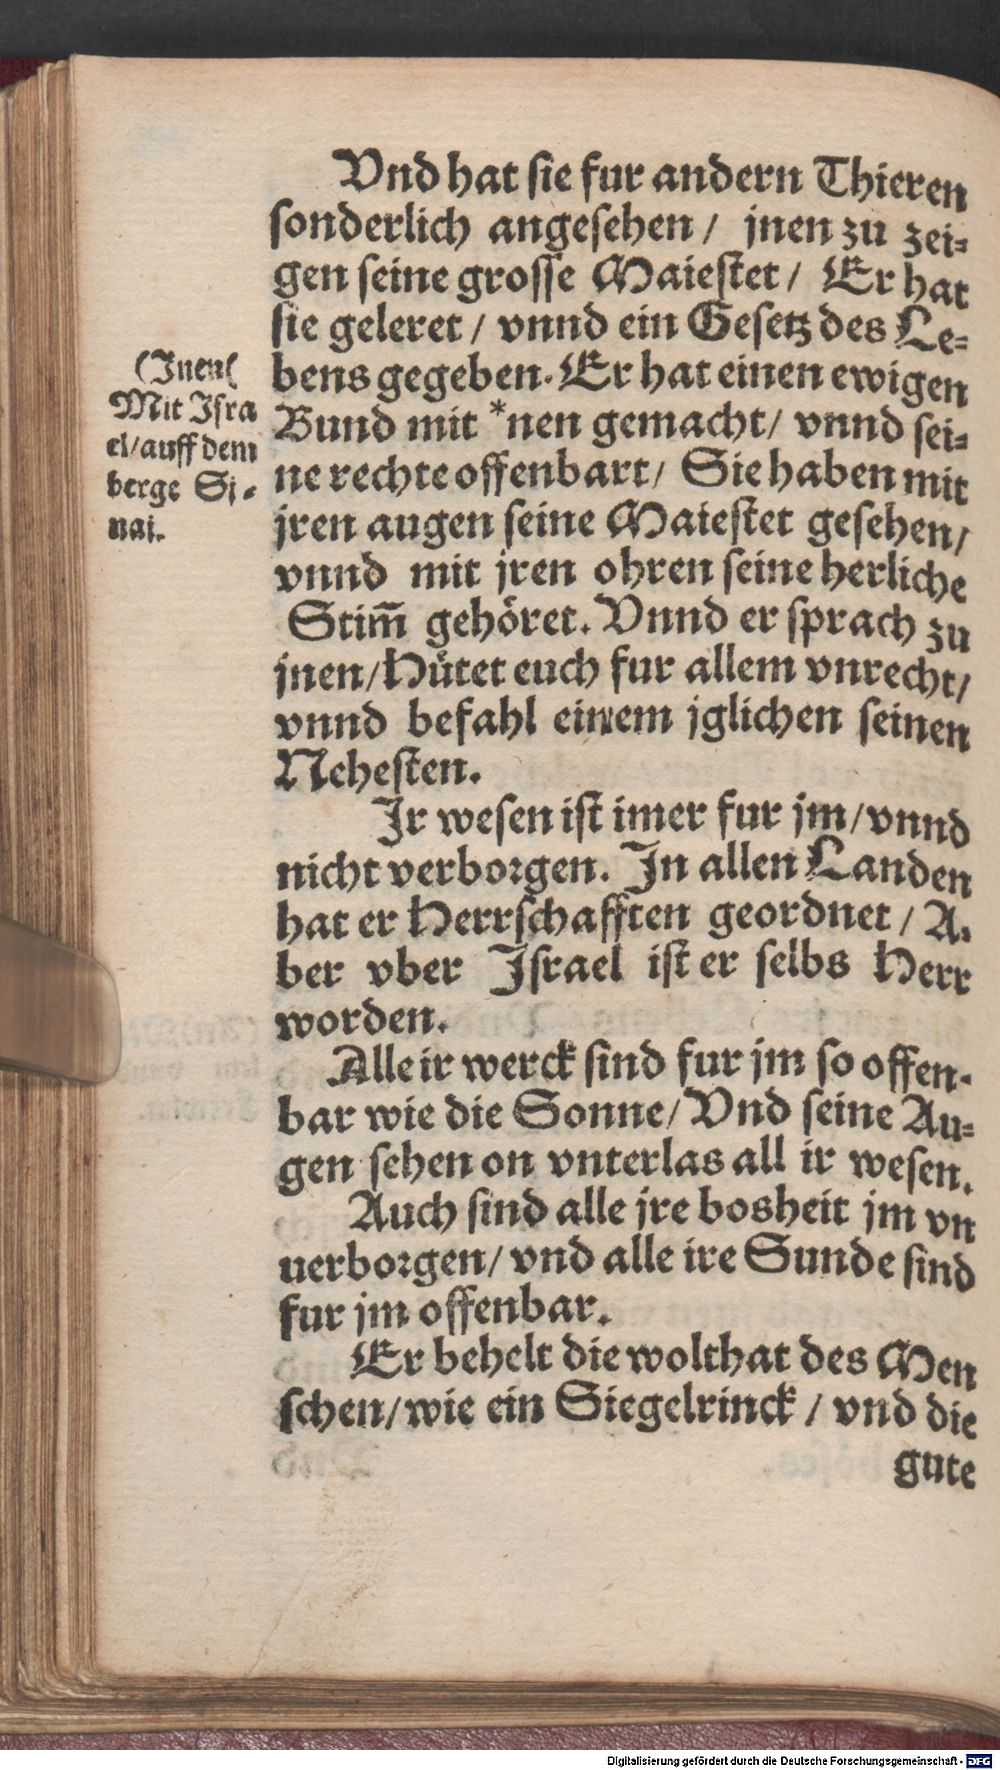 Vnd hat sie fur andern Thieren
sonderlich angesehen / jnen zu zei⸗
gen seine grosse Maiestet / Er hat
sie geleret / vnnd ein Gesetz des Le⸗
bens gegeben. Er hat einen ewigen
Bund mit *nen gemacht / vnnd sei⸗
ne rechte offenbart / Sie haben mit
jren augen seine Maiestet gesehen /
vnnd mit jren ohren seine herliche
Stim̃ gehöret. Vnnd er sprach zu
jnen / Hütet euch fur allem vnrecht /
vnnd befahl einem jglichen seinen
Nehesten.
Jr wesen ist imer fur jm / vnnd
nicht verborgen. In allen Landen
hat er Herrschafften geordnet / A.
ber vber Israel ist er selbs Herr
worden.
Alle ir werck sind fur jm so offen.
bar wie die Sonne / Vnd seine Au⸗
gen sehen on vnterlas all ir wesen.
Auch sind alle jre bosheit jm vn
uerborgen / vnd alle ire Sunde sind
fur jm offenbar.
Er behelt die wolthat des Men
schen / wie ein Siegelrinck / vnd die
gute
(Jnen(
Mit Isra
el / auff dem
berge Si.
nai.
Digitalisierung gefördert durch die Deutsche Forschungsgemeinschaft - DFG